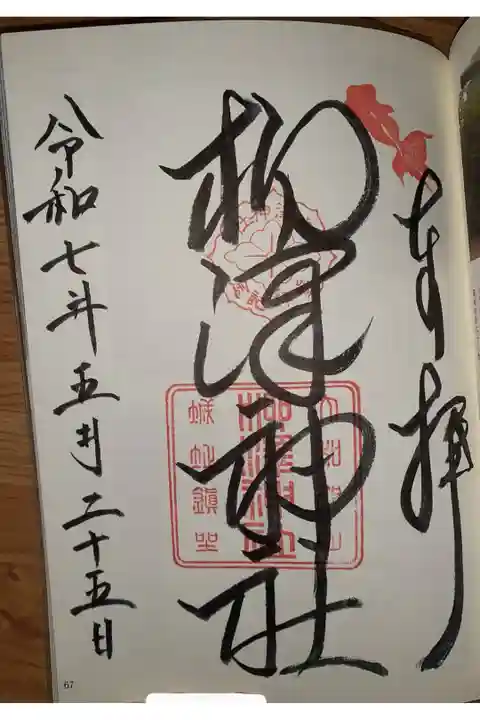 奉拝
柳澤神社
大和郡山
柳澤神社
城址鎮坐
令和七年五月二十五日
67